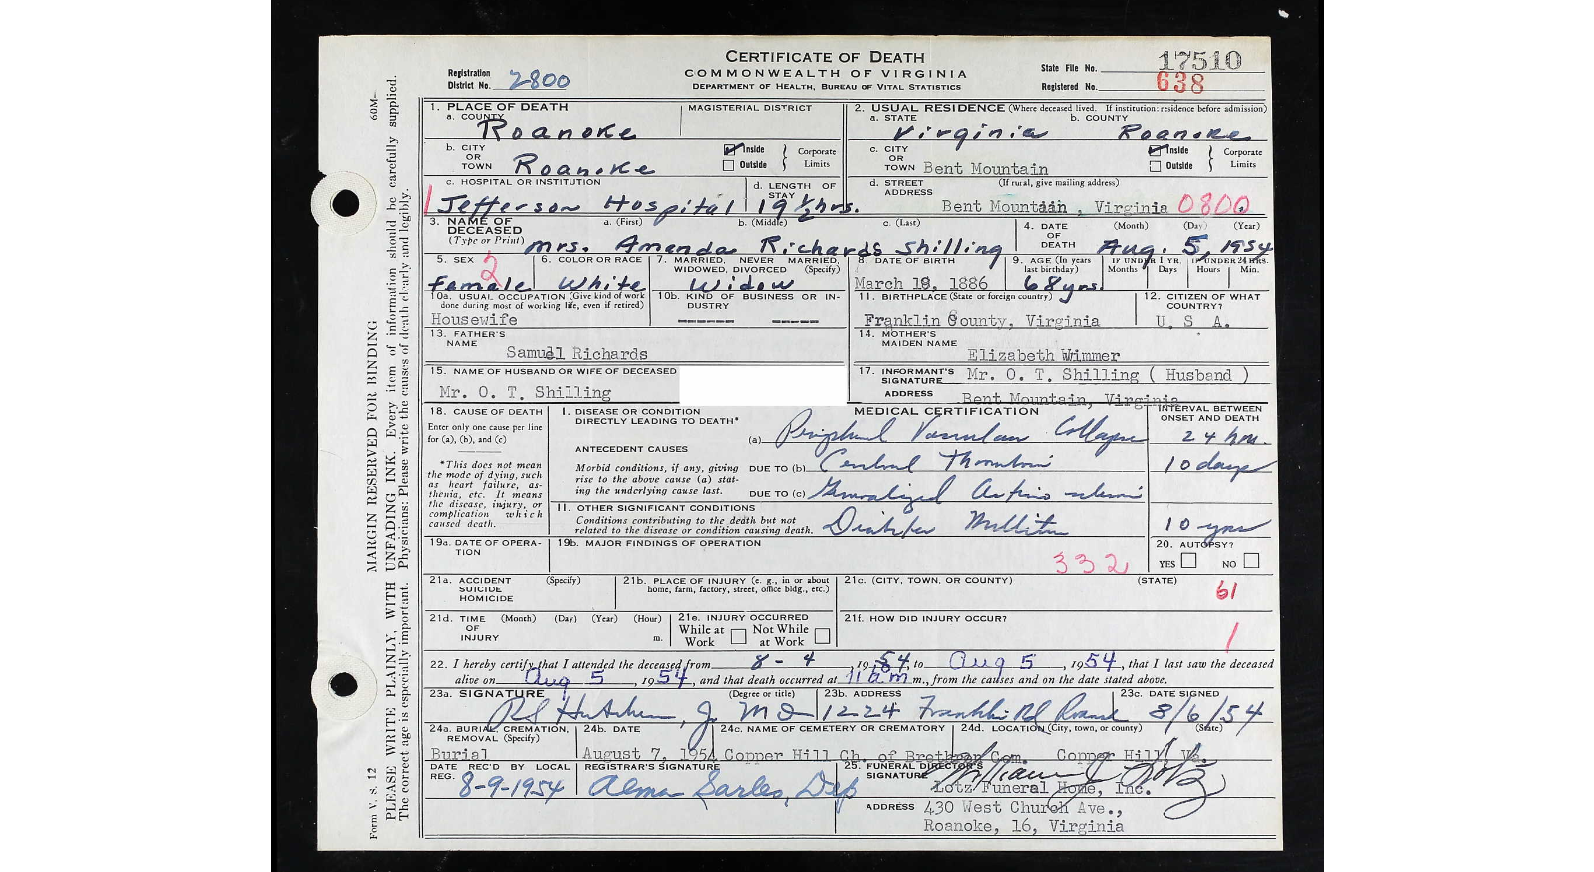 CERTIFICATE OF DEATH
COMMONWEALTH OF VIRGINIA
DEPARTMENT OF HEALTH, BUREAU OF VITAL STATISTICS
Registration District No. 2800
State File No. 17510
Registered No. 638
1. PLACE OF DEATH
a. COUNTY Roanoke
MAGISTERIAL DISTRICT
2. USUAL RESIDENCE (Where deceased lived. If institution: residence before admission)
a. STATE Virginia b. COUNTY Roanoke
b. CITY OR TOWN Roanoke Inside Outside } Corporate Limits
c. CITY OR TOWN Bent Mountain Inside Outside } Corporate Limits
c. HOSPITAL OR INSTITUTION Jefferson Hospital
d. LENGTH OF STAY 19 1/2 hrs.
d. STREET ADDRESS (If rural, give mailing address)
Bent Mountain, Virginia 0800
3. NAME OF DECEASED (Type or Print) a. (First) b. (Middle) c. (Last)
Mrs. Amanda Richards Shilling
4. DATE OF DEATH (Month) (Day) (Year)
Aug. 5, 1954
5. SEX 2 Female
6. COLOR OR RACE White
7. MARRIED, NEVER MARRIED, WIDOWED, DIVORCED (Specify) Widow
8. DATE OF BIRTH March 18, 1886
9. AGE (In years last birthday) 68 yrs.
IF UNDER 1 YR. Months Days
IF UNDER 24 HRS. Hours Min.
10a. USUAL OCCUPATION (Give kind of work done during most of working life, even if retired)
Housewife
10b. KIND OF BUSINESS OR INDUSTRY
------ -----
11. BIRTHPLACE (State or foreign country)
Franklin County, Virginia
12. CITIZEN OF WHAT COUNTRY?
U. S. A.
13. FATHER'S NAME
Samuel Richards
14. MOTHER'S MAIDEN NAME
Elizabeth Wimmer
15. NAME OF HUSBAND OR WIFE OF DECEASED
Mr. O. T. Shilling
17. INFORMANT'S SIGNATURE Mr. O. T. Shilling ( Husband )
ADDRESS Bent Mountain, Virginia
18. CAUSE OF DEATH
Enter only one cause per line for (a), (b), and (c)
*This does not mean the mode of dying, such as heart failure, asthenia, etc. It means the disease, injury, or complication which caused death.
MEDICAL CERTIFICATION
INTERVAL BETWEEN ONSET AND DEATH
I. DISEASE OR CONDITION DIRECTLY LEADING TO DEATH*
(a) Peripheral Vascular Collapse 24 hrs.
ANTECEDENT CAUSES
Morbid conditions, if any, giving rise to the above cause (a) stating the underlying cause last.
DUE TO (b) Cerebral Thrombosis 10 days
DUE TO (c) Generalized Arteriosclerosis
II. OTHER SIGNIFICANT CONDITIONS
Conditions contributing to the death but not related to the disease or condition causing death.
Diabetes Mellitus 10 yrs
19a. DATE OF OPERATION
19b. MAJOR FINDINGS OF OPERATION
332
20. AUTOPSY?
YES NO
21a. ACCIDENT SUICIDE HOMICIDE (Specify)
21b. PLACE OF INJURY (e. g., in or about home, farm, factory, street, office bldg., etc.)
21c. (CITY, TOWN, OR COUNTY) (STATE)
61
21d. TIME OF INJURY (Month) (Day) (Year) (Hour) m.
21e. INJURY OCCURRED
While at Work Not While at Work
21f. HOW DID INJURY OCCUR?
1
22. I hereby certify that I attended the deceased from 8 - 4, 1954, to Aug 5, 1954, that I last saw the deceased
alive on Aug 5, 1954, and that death occurred at 11 a m m., from the causes and on the date stated above.
23a. SIGNATURE (Degree or title)
MD
23b. ADDRESS
1224 Franklin Rd Roanoke
23c. DATE SIGNED
8/6/54
24a. BURIAL, CREMATION, REMOVAL (Specify)
Burial
24b. DATE
August 7, 1954
24c. NAME OF CEMETERY OR CREMATORY
Copper Hill Ch. of Brethren Cem.
24d. LOCATION (City, town, or county) (State)
Copper Hill, Va.
DATE REC'D BY LOCAL REG.
8-9-1954
REGISTRAR'S SIGNATURE
Alma Sarles, Dep
25. FUNERAL DIRECTOR'S SIGNATURE
William J Lotz
Lotz Funeral Home, Inc.
ADDRESS 430 West Church Ave.,
Roanoke, 16, Virginia
Form V. S. 12
60M—
MARGIN RESERVED FOR BINDING
PLEASE WRITE PLAINLY, WITH UNFADING INK. Every item of information should be carefully supplied.
The correct age is especially important. Physicians: Please write the causes of death clearly and legibly.